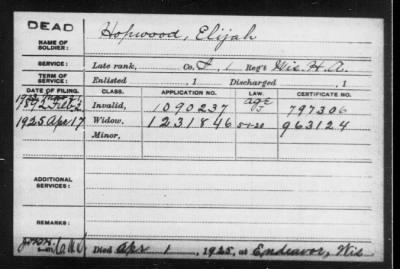 DEAD
NAME OF SOLDIER: Hopwood, Elijah
SERVICE: Late rank, Co. I, 1 Reg't Wis. H.A.
TERM OF SERVICE: Enlisted , 1 Discharged , 1
DATE OF FILING. CLASS. APPLICATION NO. LAW. CERTIFICATE NO.
1892 Feb 2 Invalid, 1090237 age 797306
1925 Apr 17 Widow, 1231846 5-1-20 963124
Minor,
ADDITIONAL SERVICES:
REMARKS:
Died Apr 1, 1925, at Endeavor, Wis